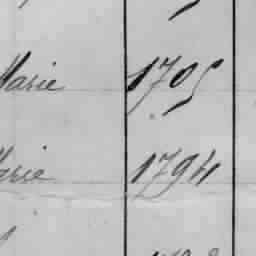 Marie 1705
Marie 1794